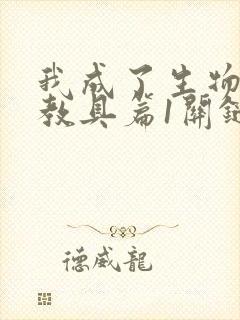 我成了生物
教具篇1開鍵
德威龍